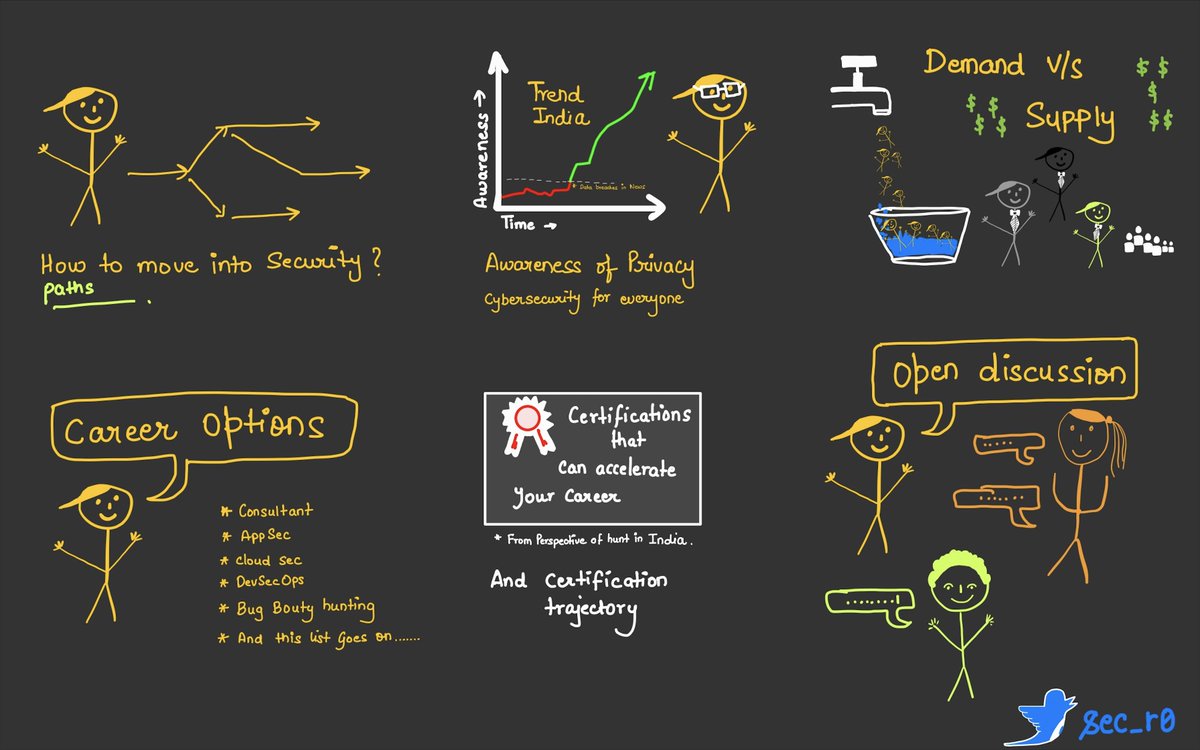 How to move into Security?
paths
Awareness →
Trend
India
* Data breaches in News
Time →
Awareness of Privacy
Cybersecurity for everyone
Demand v/s
Supply
$ $
$
$ $
$ $
$ $
Career Options
* Consultant
* AppSec
* Cloud sec
* DevSecOps
* Bug Bouty hunting
* And this list Goes on.......
Certifications
that
can accelerate
your career
* From Perspective of hunt in India.
And Certification
trajectory
Open discussion
.....
......
.......!
Sec_r0